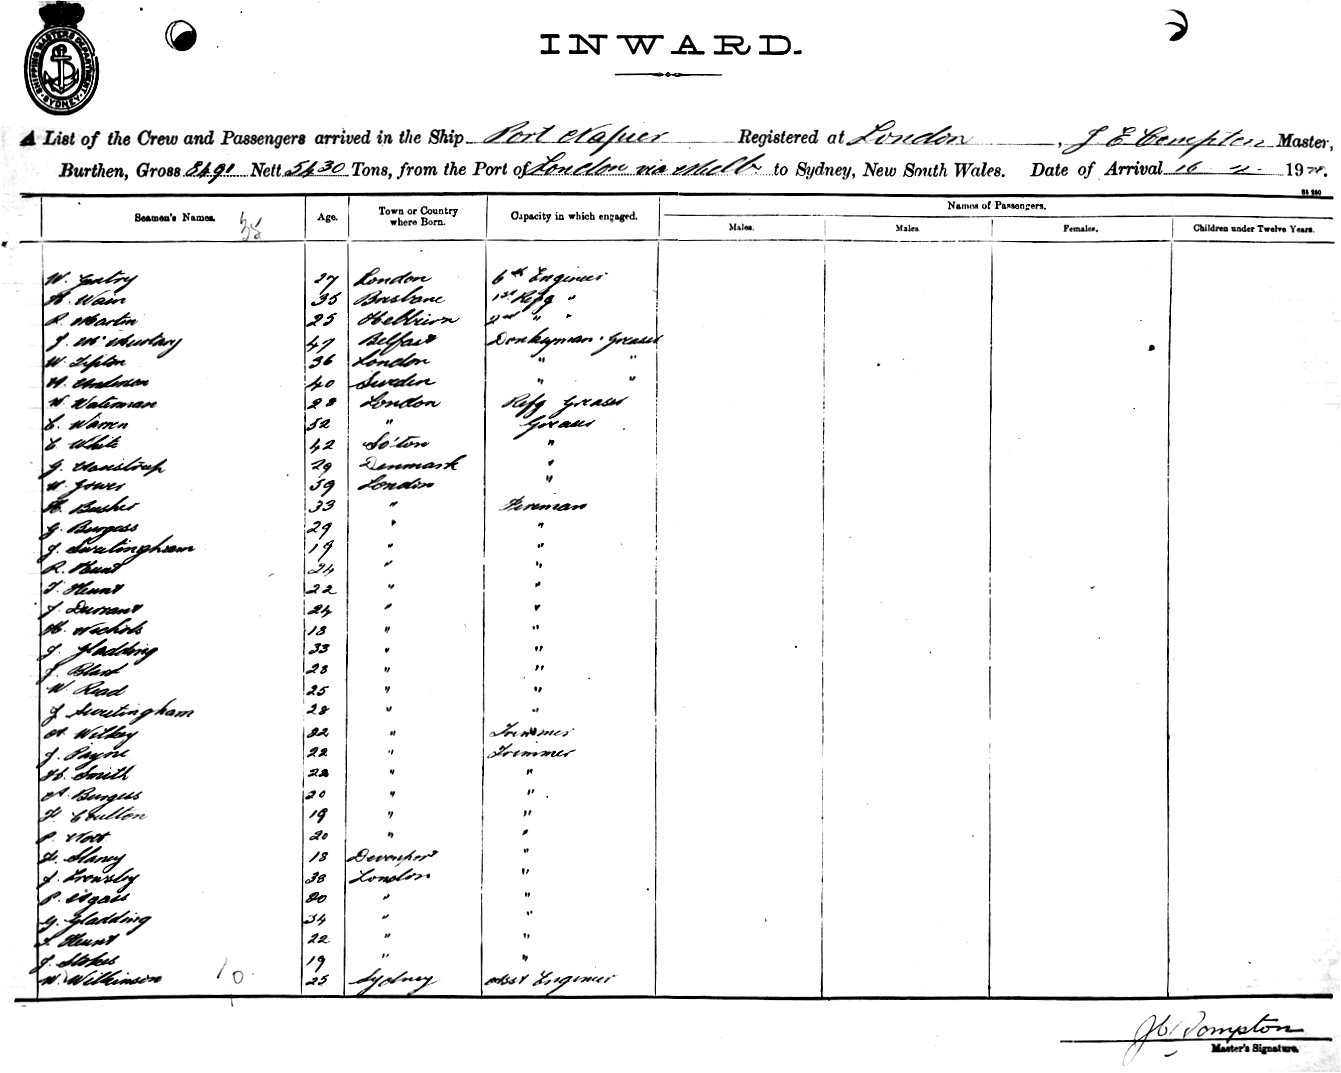 SHIPPING MASTERS DEPARTMENT SYDNEY
INWARD.
A List of the Crew and Passengers arrived in the Ship Port Napier Registered at London, J E Compton Master,
Burthen, Gross 8491 Nett 5430 Tons, from the Port of London via Melb to Sydney, New South Wales. Date of Arrival 16 19
Seamen's Names. Age. Town or Country where Born. Capacity in which engaged. Names of Passengers.
Males. Males. Females. Children under Twelve Years.
W. Gentry 27 London 6th Engineer
H. Wain 35 Brisbane 1st Refg "
R. Martin 25 Hebburn 2nd " "
J. 47 Belfast Donkeyman · Greaser
W. Tipton 36 London " "
A. Anderson 40 Sweden " "
W. Waterman 28 London Refg Greaser
C. Warren 52 " Greaser
C. White 42 So'ton "
G. 29 Denmark "
W. Gower 39 London "
H. Busher 33 " Fireman
G. Burgess 29 " "
J. Swetingham 19 " "
R. Hunt 24 " "
T. Hunt 22 " "
J. Durrant 24 " "
H. Nichols 18 " "
J. Gladding 33 " "
J. 28 " "
W. Read 25 " "
J. Swetingham 28 " "
A. Wilkey 22 " Trimmer
J. Payne 22 " Trimmer
H. Smith 22 " "
A. Burgess 20 " "
F. Coulton 19 " "
P. 20 " "
F. Slaney 18 Devonport "
J. 38 London "
P. 20 " "
G. Gladding 34 " "
Hunt 22 " "
J. Stokes 19 " "
W. Wilkinson 25 Sydney Asst Engineer
10
J E Compton
Master's Signature.